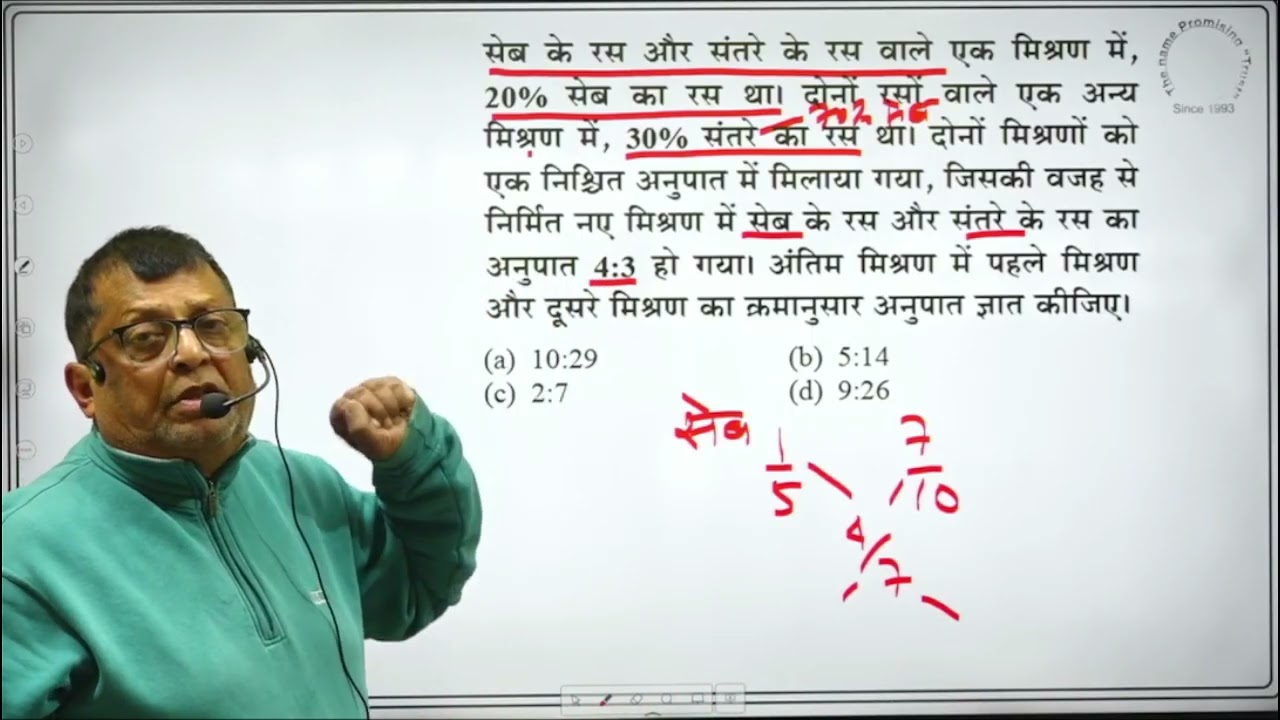 सेब के रस और संतरे के रस वाले एक मिश्रण में,
20% सेब का रस था। दोनों रसों वाले एक अन्य
70% सेब
मिश्रण में, 30% संतरे का रस था। दोनों मिश्रणों को
एक निश्चित अनुपात में मिलाया गया, जिसकी वजह से
निर्मित नए मिश्रण में सेब के रस और संतरे के रस का
अनुपात 4:3 हो गया। अंतिम मिश्रण में पहले मिश्रण
और दूसरे मिश्रण का क्रमानुसार अनुपात ज्ञात कीजिए।
(a) 10:29 (b) 5:14
(c) 2:7 (d) 9:26
सेब 1/5 7/10
4/7
The name Promising "Trust"
Since 1993